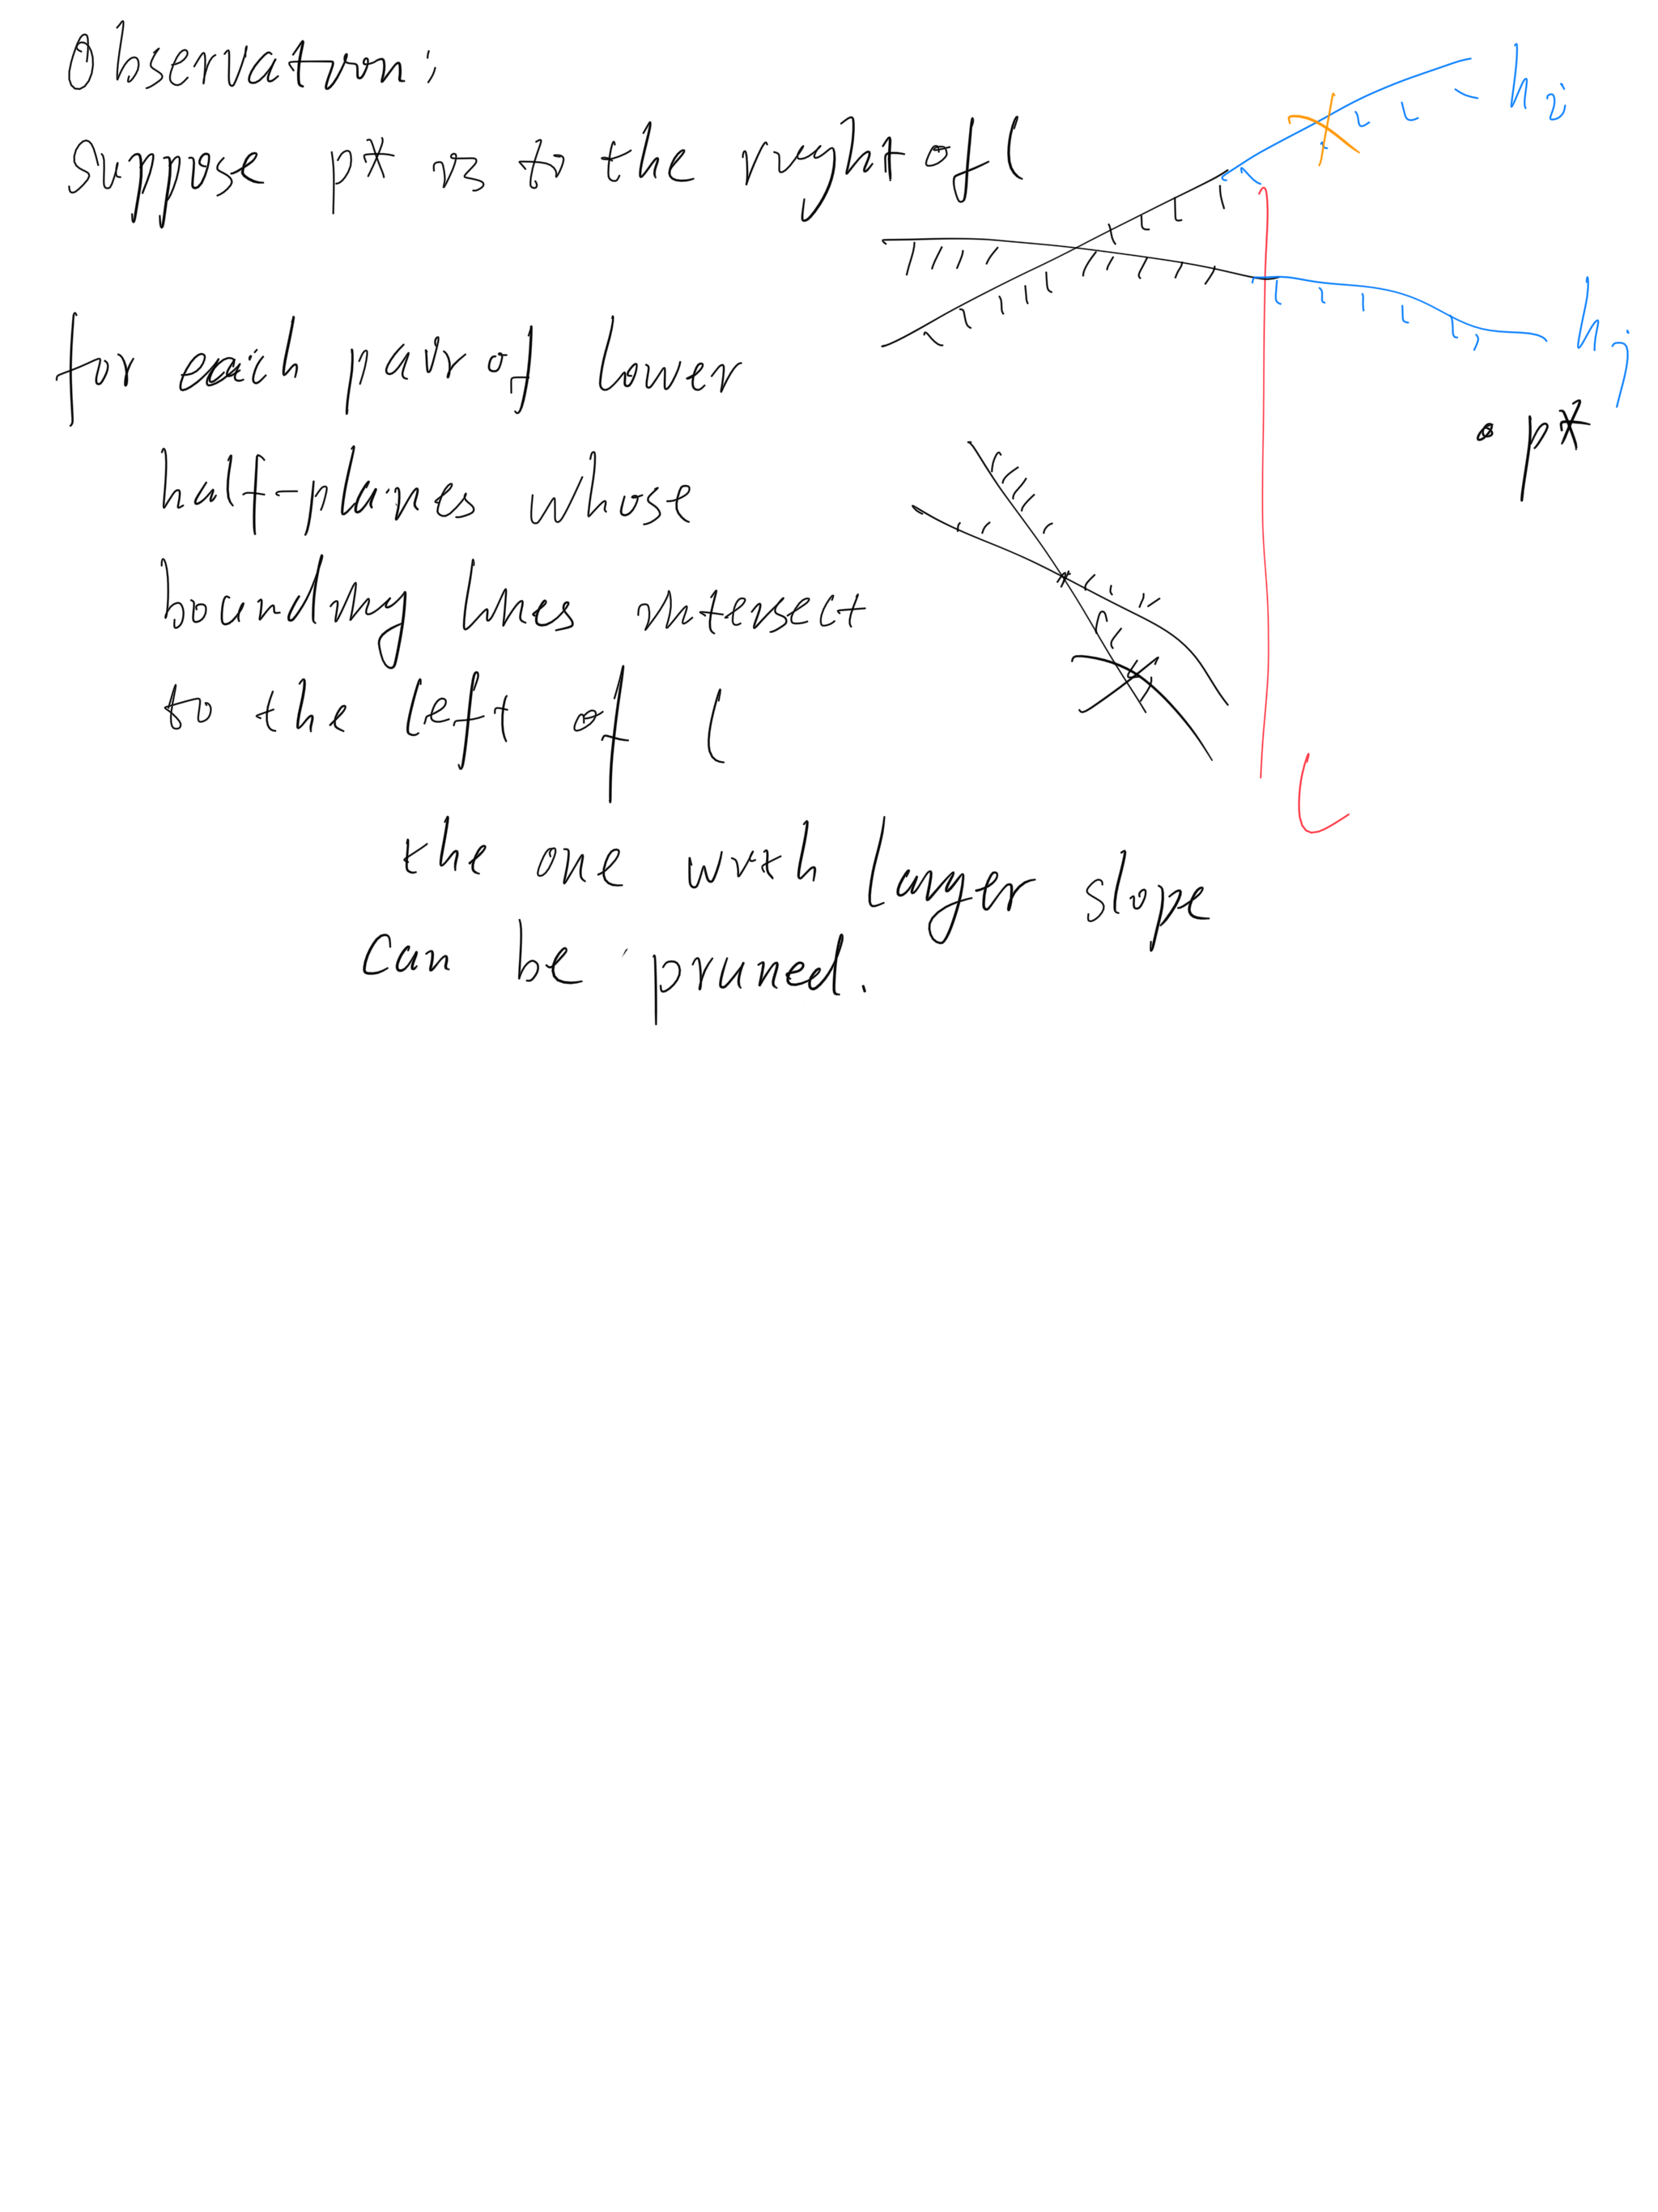 Observation:
suppose p* is to the right of l
for each pair of lower
half-planes whose
bounding lines intersect
to the left of l
the one with larger slope
can be pruned.
hi
hj
p*
l